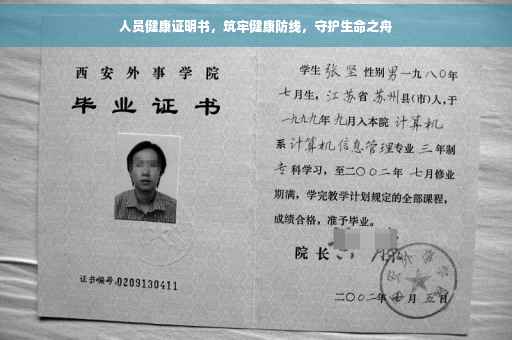 人员健康证明书，筑牢健康防线，守护生命之舟
西安外事学院
毕业证书
证书编号:0209130411
学生 张坚 性别男一九八〇年
七月生，江苏省苏州县(市)人,于
一九九九年九月入本院 计算机
系 计算机信息管理专业 三年制
专科学习，至二〇〇二年 七月修业
期满，学完教学计划规定的全部课程，
成绩合格，准予毕业。
院长
二〇〇二年 月 五日